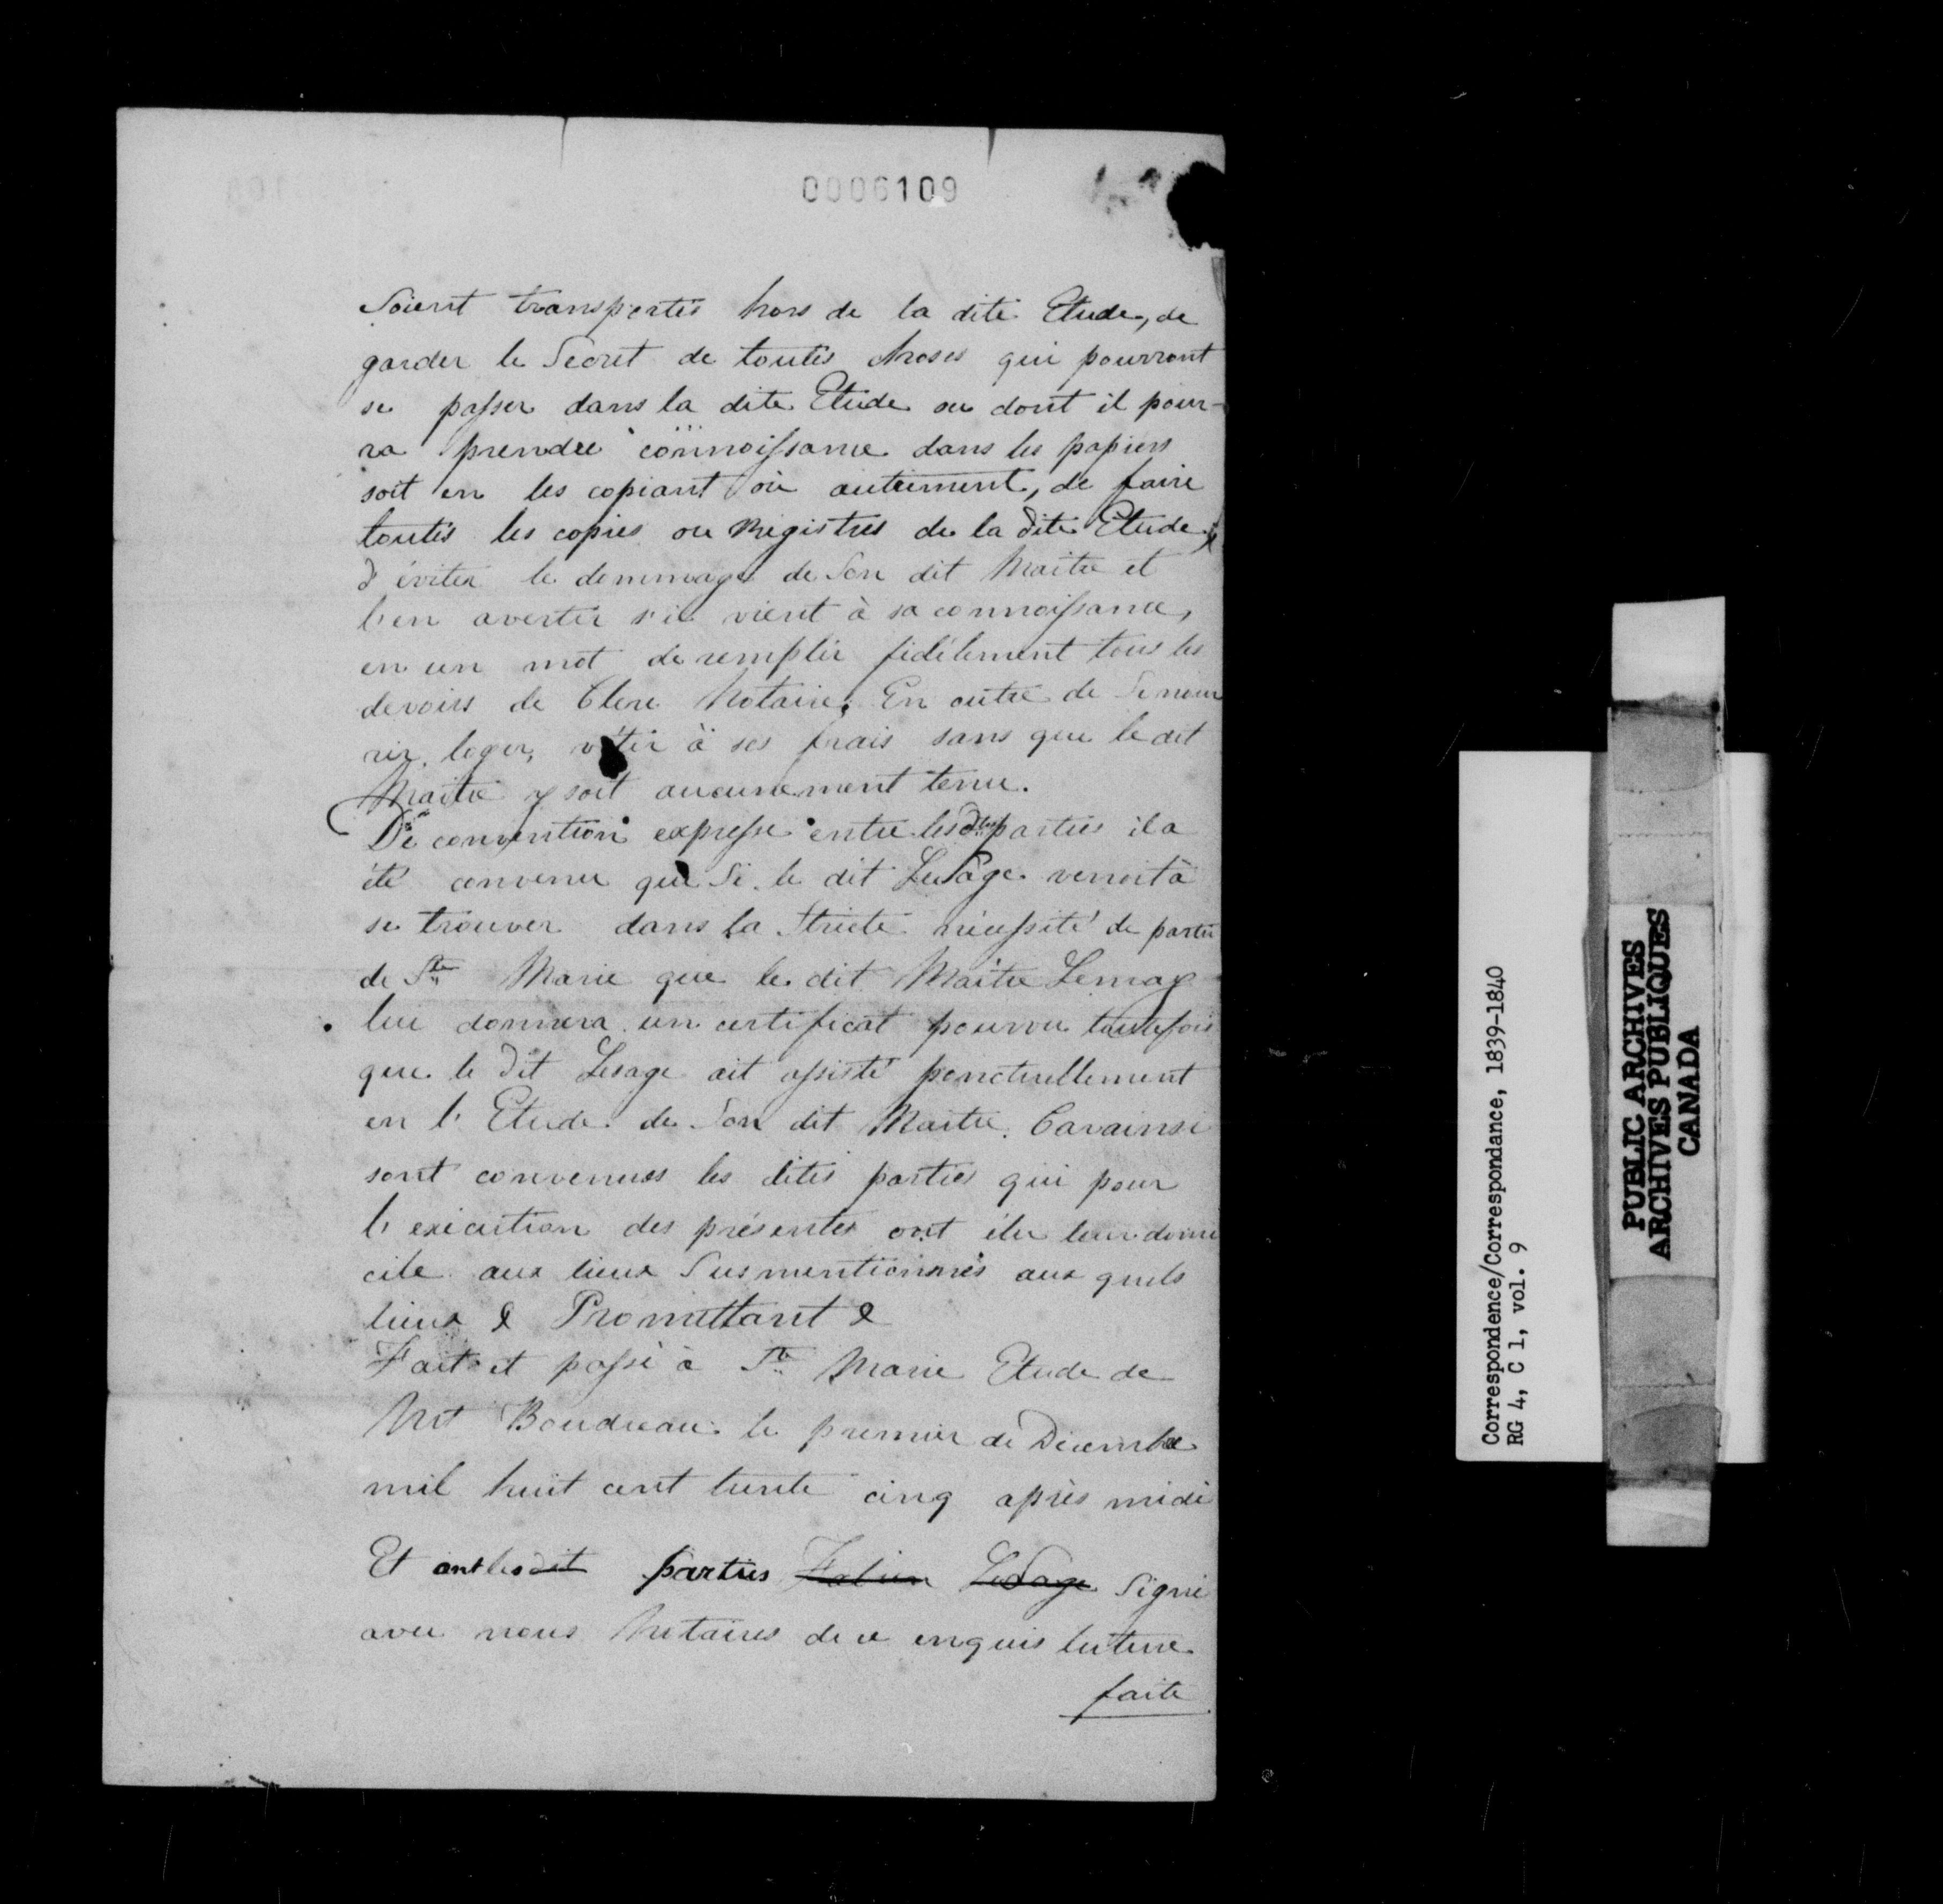 0006109
Soient transportés hors de la dite Etude, de
garder le Secret de toutes choses qui pourront
se passer dans la dite Etude ou dont il pour-
ra prendre connoissance dans les papiers
soit en les copiant où autrement, de faire
toutes les copies ou Régistres de la dite Etude
d'éviter le dommage de Son dit Maitre et
l'en avertir s'il vient à sa connoissance,
en un mot de remplir fidélement tous les
devoirs de Clerc Notaire. En outre de Se nour
rir, loger, vétir à ses frais sans que le dit
Maitre y soit aucunement tenu.
De convention expresse entre les dtes parties il a
été convenu que Si le dit LeSage venoit à
se trouver dans la Stricte nécessité de partir
de Ste Marie que le dit Maitre Lemay
lui donnera un certificat pourvu toutefois
que le dit Lesage ait assisté ponctuellement
en l'Etude de Son dit Maitre. Car ainsi
sont convenues les dites parties qui pour
l'exécution des présentes ont élu leur domi
cile aux lieux Susmentionnés aux quels
lieux & Promettant &
Fait et passé à Ste Marie Etude de
Mt Boudreau le premier de Décembre
mil huit cent trente cinq après midi
Et ont les dit parties Fabien LeSage Signé
avec nous Notaires de ce enquis lecture
faite
Correspondence/Correspondance, 1839-1840
RG 4, C 1, vol. 9
PUBLIC ARCHIVES
ARCHIVES PUBLIQUES
CANADA